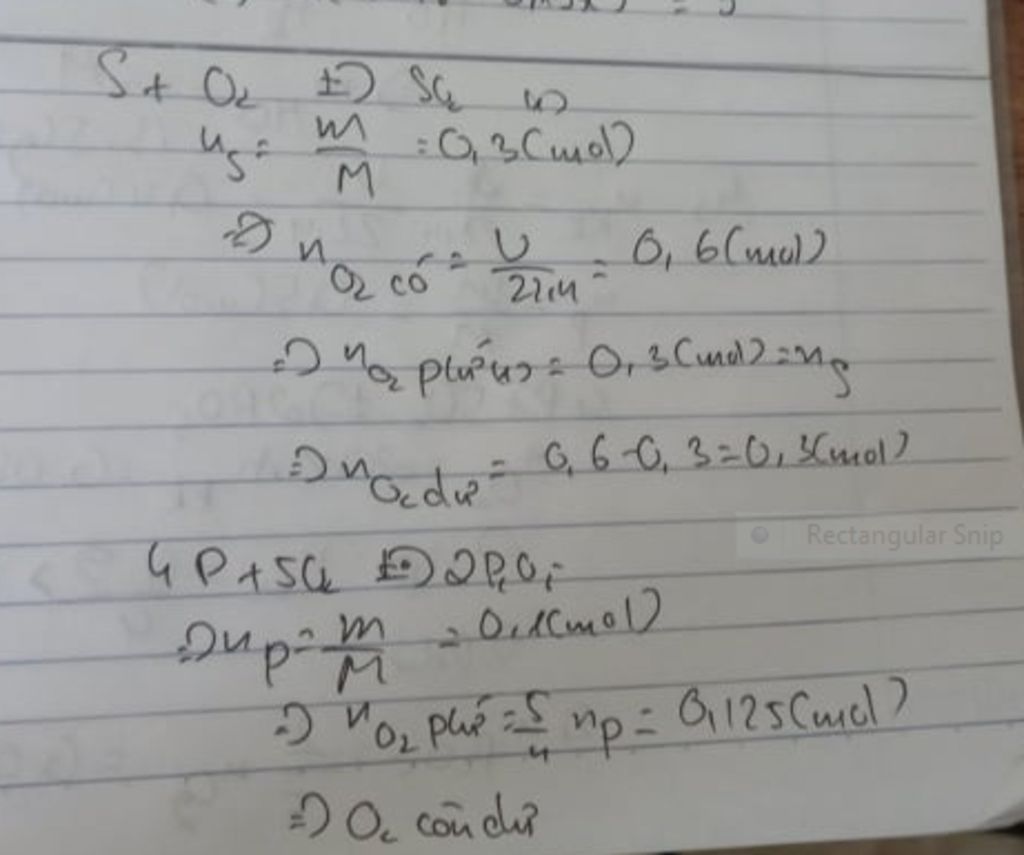 S + O2 t=> SO2 (1)
nS = m/M = 0,3(mol)
=> nO2 có = V/22,4 = 0,6(mol)
=> nO2 phứ (1) = 0,3(mol) = nS
=> nO2 dư = 0,6-0,3=0,3(mol)
Rectangular Snip
4P + 5O2 t=> 2P2O5
=> nP = m/M = 0,1(mol)
=> nO2 phứ = 5/4 nP = 0,125(mol)
=> O2 còn dư